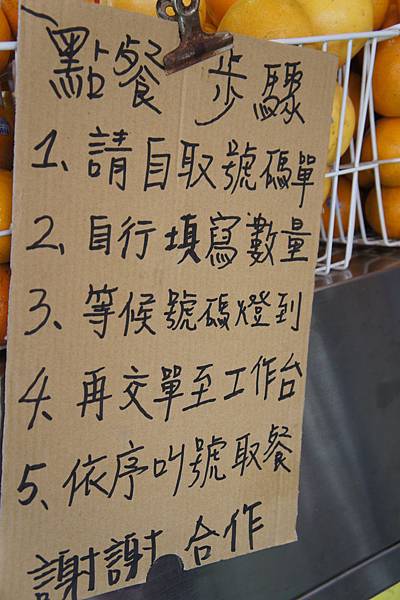 點餐 步驟
1、請自取號碼單
2、自行填寫數量
3、等候號碼燈到
4、再交單至工作台
5、依序叫號取餐
謝謝 合作